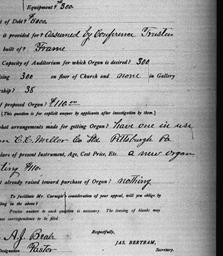 Equipment? $300.
t of Debt? $1000.
is provided for? assumed by Conference Trustees
built of? Frame
Capacity of Auditorium for which Organ is desired? 300
300 in floor of Church and none in Gallery
rship? 38
f proposed Organ? $110.00
[This question is for explicit answer by applicants after investigation by them.]
hat arrangements made for getting Organ? have one in use
m C.C. Mellor Co Ltd Pittsburgh Pa
ulars of present instrument, Age, Cost Price, Etc. a new organ
ting $110.
t already raised toward purchase of Organ? nothing
To facilitate Mr. Carnegie's consideration of your appeal, will you oblige by
ling in the above?
Precise answer to each question is necessary. The leaving of blanks may
ean correspondence to be filed.
Respectfully,
A.J. Beale
Designation Pastor
JAS. BERTRAM,
Secretary.